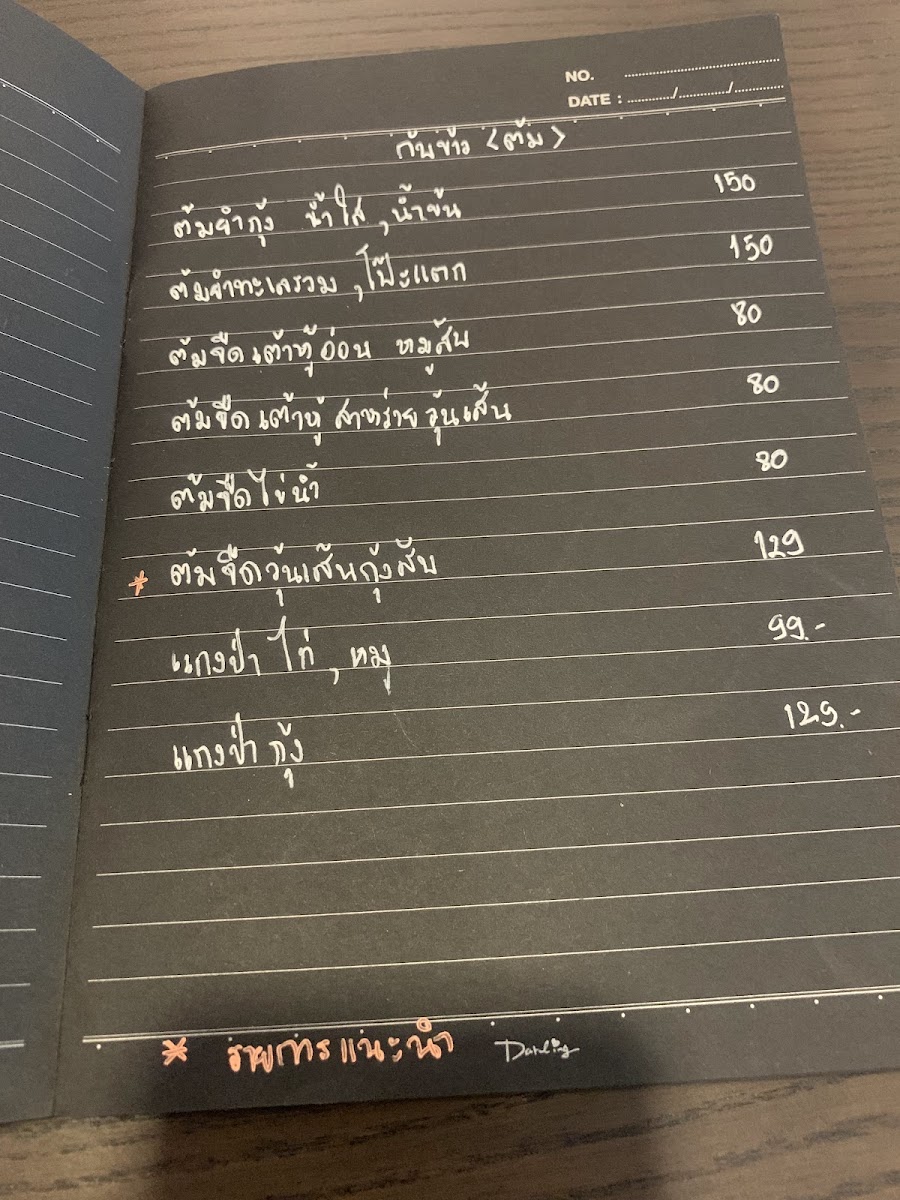 NO. ....................
DATE : ............/............/............
กับข้าว <ต้ม>
ต้มยำกุ้ง น้ำใส , น้ำข้น 150
ต้มยำทะเลรวม , โป๊ะแตก 150
ต้มจืดเต้าหู้อ่อน หมูสับ 80
ต้มจืดเต้าหู้ สาหร่าย วุ้นเส้น 80
ต้มจืดไข่น้ำ 80
* ต้มจืดวุ้นเส้นกุ้งสับ 129
แกงป่า ไก่ , หมู 99.-
แกงป่า กุ้ง 129.-
* รายการแนะนำ Darling